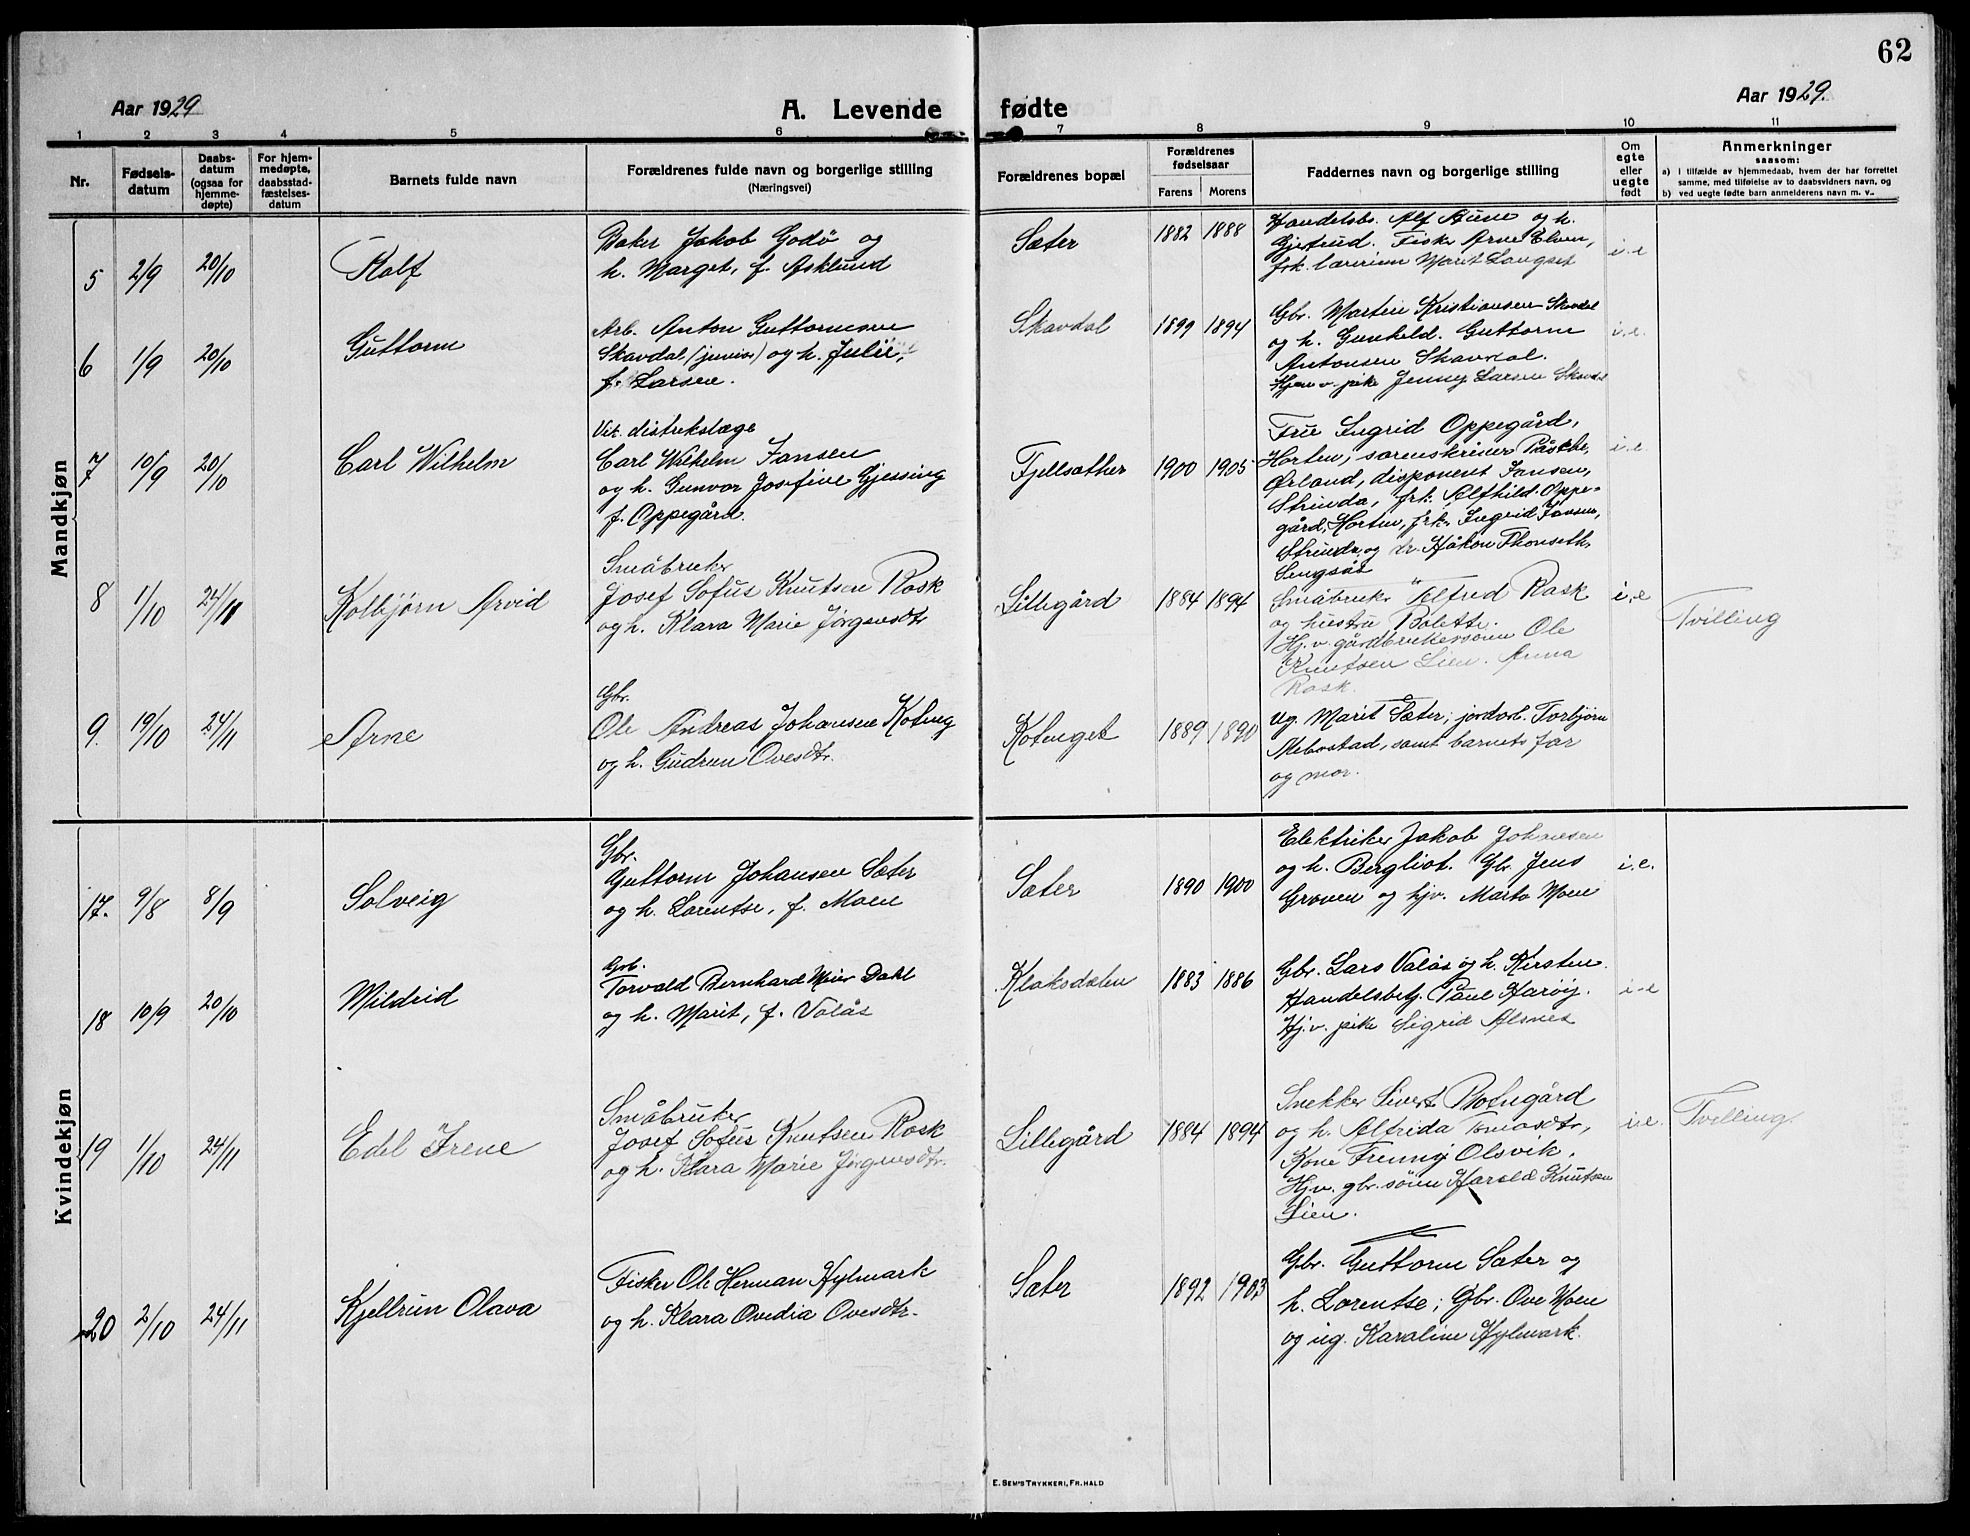 62
Aar 1929
A. Levende fødte
Aar 1929.
1 2 3 4 5 6 7 8 9 10 11
Nr.
Fødsels-
datum
Daabs-
datum
(ogsaa for
hjemme-
døpte)
For hjem-
medøpte,
daabsstad-
fæstelses-
datum
Barnets fulde navn
Forældrenes fulde navn og borgerlige stilling
(Næringsvei)
Forældrenes bopæl
Forældrenes
fødselsaar
Farens Morens
Faddernes navn og borgerlige stilling
Om
egte
eller
uegte
født
Anmerkninger
saasom:
a) i tilfælde av hjemmedaab, hvem der har forrettet
samme, med tilføielse av to daabsvidners navn, og
b) ved uegte fødte barn anmelderens navn m. v..
Mandkjøn
5 2/9 20/10 Rolf
Baker Jakob Godø og
h. Marget, f. Asklund
Sæter 1882 1888
Handelsb. Alf Aune og h.
Gjertrud. Fisker Arne Elven,
frk. lærerinne Marit Langset
i.e
6 1/9 20/10 Guttorm
Arb. Anton Guttormsen
Skavdal, (junior) og h. Julie,
f. Larsen.
Skavdal 1899 1894
Gbr. Martin Kristiansen Skavdal
og h. Gunhild. Guttorm
Antonsen Skavdal.
Hjemv. pike Jenny Larsen Skavdal
i.e.
7 10/9 20/10 Carl Wilhelm
Vik. distriktslæge
Carl Wilhelm Jansen
og h. Gunvor Josefine Gjessing
f. Oppegård.
Fjellsæther 1900 1905
Frue Ingrid Oppegård,
Horten, sorenskriver Påske,
Ørland, disponent Jansen,
Strinda, frk. Alfhild Oppe-
gård, Horten, frk. Ingrid Jansen,
Strinda, og dr. Håkon Thonseth,
i.e
8 1/10 24/11 Kolbjørn Arvid
Småbruker
Josef Sofus Knutsen Rask
og h. Klara Marie Jørgensdtr
Lillegård 1884 1894
Småbruker Alfred Rask
og hustru Bolette.
Hj.v. gårdbrukersønn Ole
Knutsen Lien. Anna
Rask.
i.e
Tvilling
9. 19/10 24/11 Arne
Gbr.
Ole Andreas Johansen Koteng
og h. Gudrun Ovesdtr.
Kotenget 1889 1890
Ug. Marit Sæter, jordarb. Torbjørn
Mebostad, samt barnets far
og mor.
Kvindekjøn
17. 9/8 8/9 Solveig
Gbr.
Guttorm Johansen Sæter
og h. Lorentse, f. Moen
Sæter 1890 1900
Elektriker Jakob Johnesen
og h. Bergliot. Gbr. Jens
Groven og hjv. Marta Moen
i.e.
18 10/9 20/10 Mildrid
Arb.
Torvald Bernhard Meier Dahl
og h. Marit, f. Valås
Klaksdalen 1883 1886
Gbr. Lars Valås og h. Kirsten.
Handelsbetj. Paul Harøy.
Hj.v. pike Sigrid Alsnes
i-e
19 1/10 24/11 Edel Irene
Småbruker
Josef Sofus Knutsen Rask
og h. Klara Marie Jørgensdtr.
Lillegård 1884 1894
Snekker Sivert Botngård
og h. Alfrida Tomasdtr,
Kone Frenny Olsvik.
Hjv. gbr.sønn Harald Knutsen
Lien.
i.e.
Tvilling.
20 2/10 24/11 Kjellrun Olava
Fisker Ole Herman Hylmark
og h. Klara Ovedia Ovesdtr.
Sæter 1892 1903
Gbr. Guttorm Sæter og
h. Lorentse; Gbr. Ove Moen
og ug. Karoline Hylmark.
E. SEM'S TRYKKERI, FR.HALD